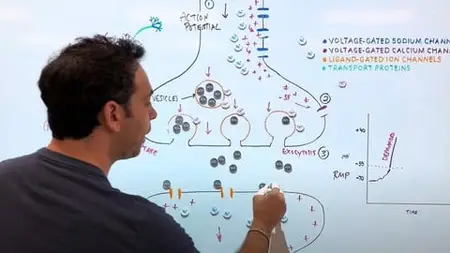 ①
ACTION
POTENTIAL
• VOLTAGE-GATED SODIUM CHANN
• VOLTAGE-GATED CALCIUM CHAN
• LIGAND-GATED ION CHANNELS
• TRANSPORT PROTEINS
VESICLES
②
EXOCYTOSIS ③
+40
DEPOLARIZED
mV
-55
RMP
-70
TIME